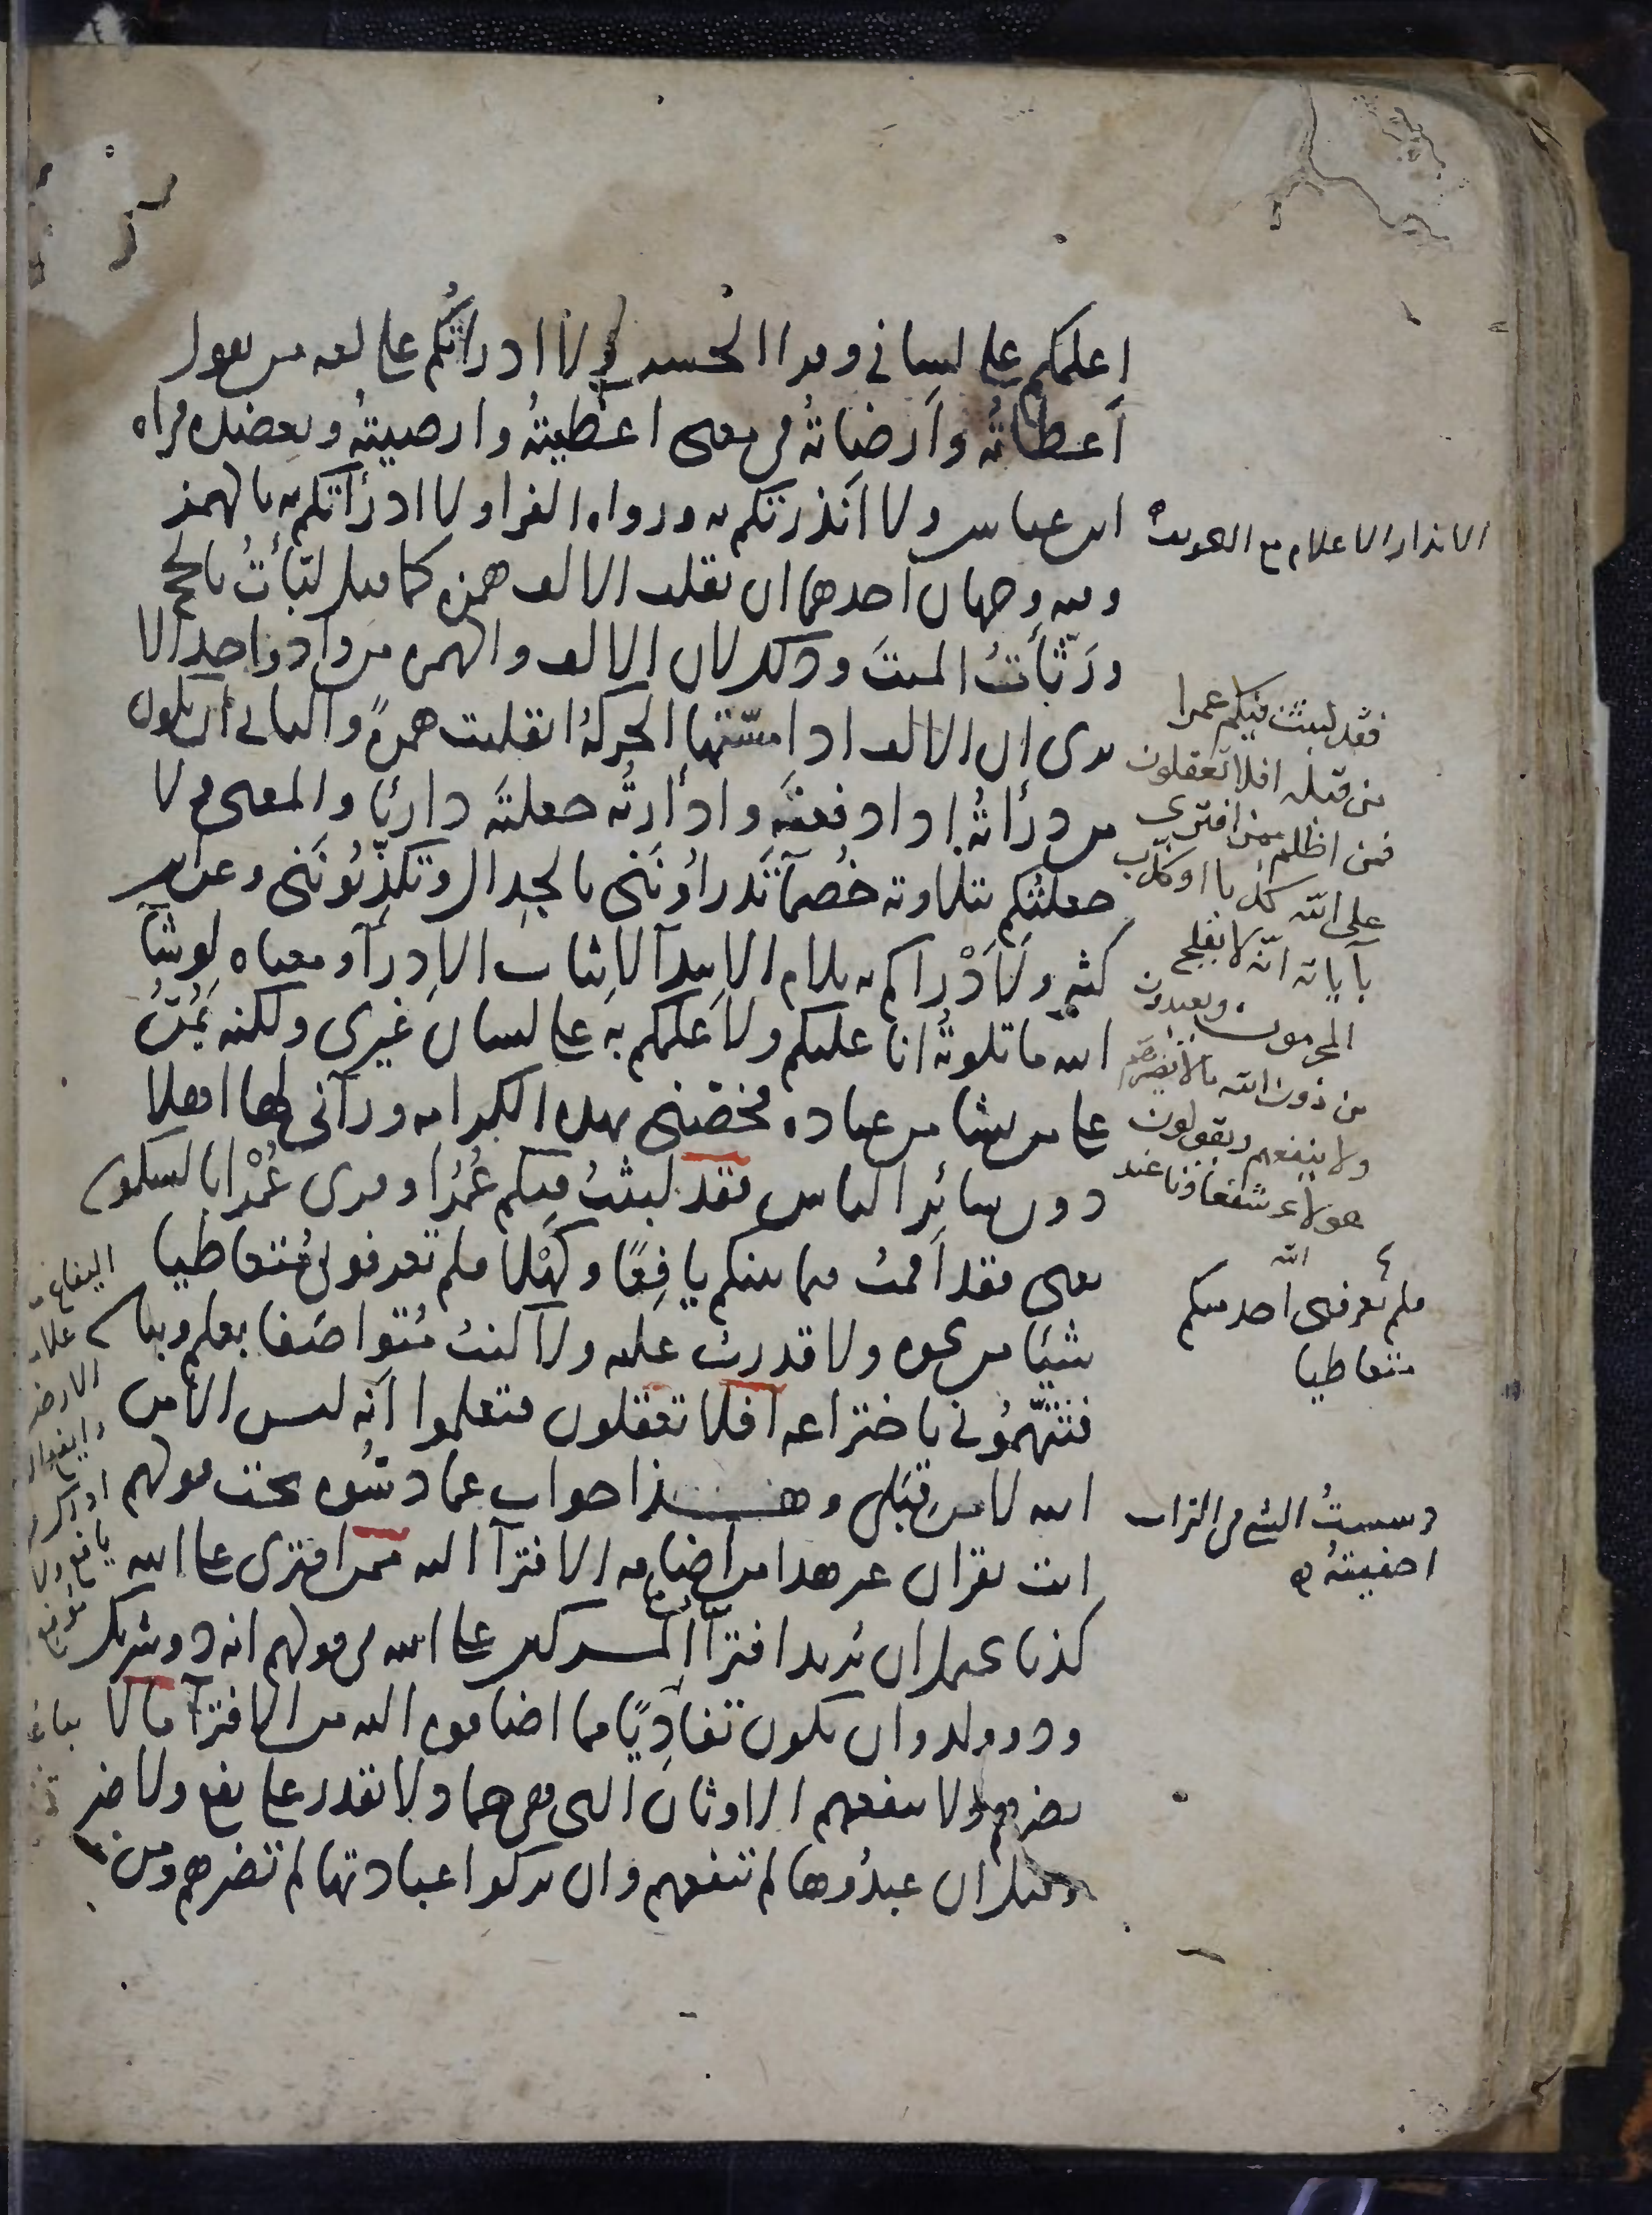 اعلمكم على لساني وقرا الحسن ولا ادراتكم على لغه من يقول
أعطاتُه وأرضاتُه في معنى اعطيتُه وارضيتُه وتعضده قراه
ابن عباس ولا انذرتكم به ورواه الفرا ولا ادرأتكم به بالهمز
وفيه وجهان احدهما ان تقلب الالف همزه كما قيل لبّأتُ بالحج
ورَثّأتُ الميتَ وذلك لان الالف والهمزه من واد واحد الا
ترى ان الالف اذا مسّتها الحركةُ انقلبت همزةً والثاني ان يكون
من درأتُه اذا دفعتَه وادرأتُه جعلتَه دارئا والمعنى ولا
جعلتُكم بتلاوته خُصَمآ تَدراُونَنى بالجدال وتكذّبُونَنى وعن ابن
كثير ولَأَدْراكم به بلام الابتدآ لاثبات الادرآ ومعناه لو شآ
الله ما تلوتُه انا عليكم ولاعلمكم به على لسان غيرى ولكنه يَمُنّ
على من يشا من عباده فخصّنى بهذه الكرامه ورآنى لها اهلا
دون سائر الناس فقد لبثتُ فيكم عُمُرًا وقرى عُمْرًا بالسكون
يعنى فقد اقمتُ فيما بينكم يافِعًا وكَهْلا فلم تعرفونى مُتعاطيا
شيئا من نحوه ولا قدرتُ عليه ولا كنتُ مُتواصَفا بعلم وبيان
فتتّهمُونى باختراعه افلا تعقلون فتعلموا انه ليس الا من
الله لا من قِبَلى وهذا جواب عما دسُّوه تحت قولهم
ائت بقران غير هذا من اضافه الافترآ اليه فمن افترى على الله
كذبا يحتمل ان يُريد افترآ المشركين على الله في قولهم انه ذو شريك
وذو ولد وان يكون تفادِيًا مما اضافوه اليه من الافترآ ما لا
يضرهم ولا ينفعهم الاوثان التى هى جماد ولا تقدر على نفع ولا ضر
وقيل ان عبدُوها لم تنفعهم وان تركوا عبادتها لم تضرهم ومن
الانذار الاعلام مع التخويف
فقد لبثت فيكم عمرا
من قبله افلا تعقلون
فمن اظلم ممن افترى
على الله كذبا او كذّب
بآياته انّه لا يفلح
المجرمون ويعبدون
من دون الله ما لا يضرهم
ولا ينفعهم ويقولون
هولاء شفعاؤنا عند
الله
فلم يعرفنى احد منكم
متعاطيا
دسستُ الشى فى التراب
اخفيتهُ
اليفاع
علا
الارض
وايفع
يافع ولا